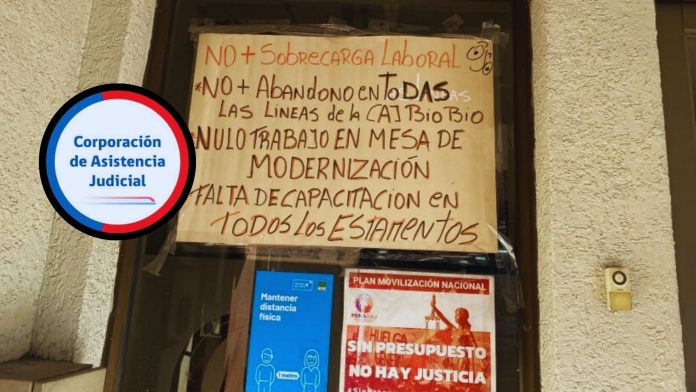 NO + SOBRECARGA LABORAL
*NO + ABANDONO EN TODAS
LAS LINEAS de la CAJ BIO BIO
*NULO TRABAJO EN MESA DE
MODERNIZACIÓN
FALTA DE CAPACITACION en
TODOS LOS ESTAMENTOS
Corporación
de Asistencia
Judicial
Mantener
distancia
física
1 metro
PLAN MOVILIZACIÓN NACIONAL
HUELGA
SIN PRESUPUESTO
NO HAY JUSTICIA